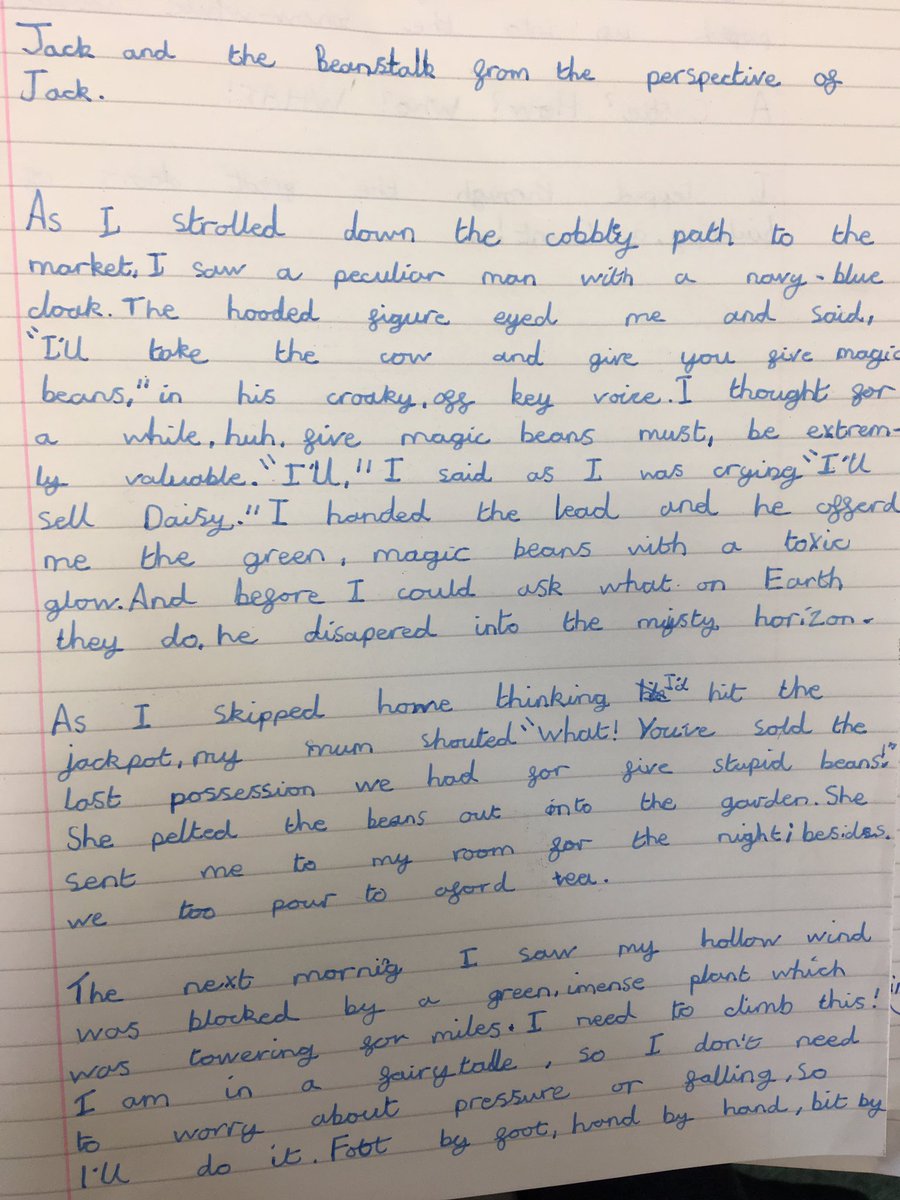 Jack and the Beanstalk from the perspective of
Jack.
As I strolled down the cobbly path to the
market, I saw a peculiar man with a navy-blue
cloak. The hooded figure eyed me and said,
"I'll take the cow and give you five magic
beans," in his croaky, off key voice. I thought for
a while, huh, five magic beans must, be extrem-
ly valuable. "I'll," I said as I was crying "I'll
sell Daisy." I handed the lead and he offerd
me the green, magic beans with a toxic
glow. And before I could ask what on Earth
they do, he disapered into the misty horizon.
As I skipped home thinking I'd hit the
jackpot, my mum shouted "what! You've sold the
last possession we had for five stupid beans!"
She pelted the beans out into the garden. She
sent me to my room for the night; besides.
we too pour to aford tea.
The next mornig I saw my hollow wind
was blocked by a green, imense plant which
was towering for miles. I need to climb this!
I am in a fairytalle, so I don't need
to worry about pressure or falling, so
I'll do it. Foot by foot, hand by hand, bit by